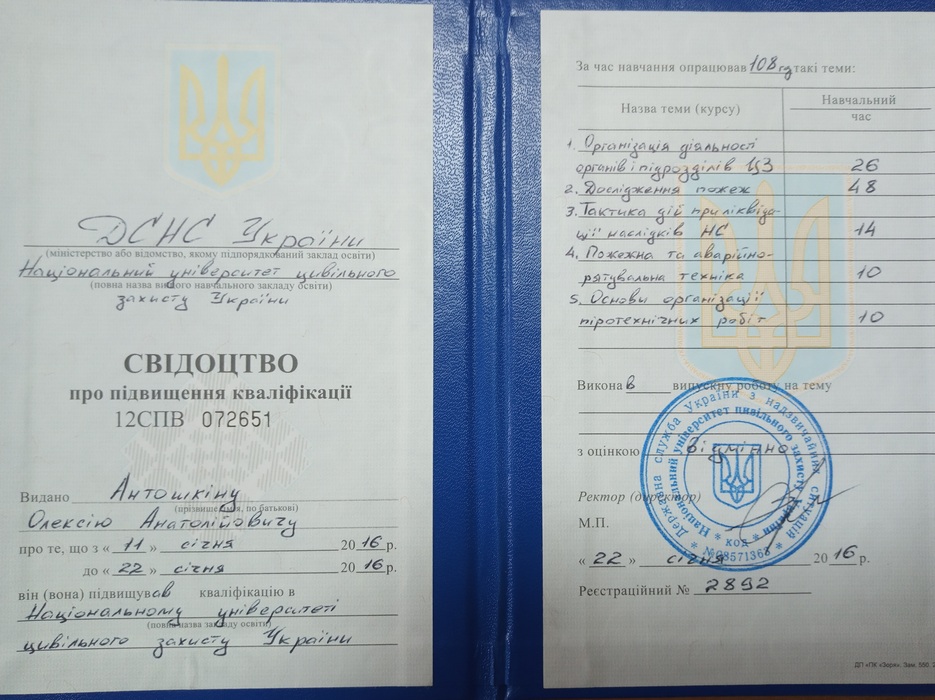 ДСНС України
(міністерство або відомство, якому підпорядкований заклад освіти)
Національний університет цивільного
(повна назва вищого навчального закладу освіти)
захисту України
СВІДОЦТВО
про підвищення кваліфікації
12СПВ 072651
Видано Антошкіну
(прізвище, ім'я, по батькові)
Олексію Анатолійовичу
про те, що з « 11 » січня 2016 р.
до « 22 » січня 2016 р.
він (вона) підвищував кваліфікацію в
Національному університеті
(повна назва закладу освіти)
цивільного захисту України
За час навчання опрацював 108 год такі теми:
Назва теми (курсу) Навчальний час
1. Організація діяльності
органів і підрозділів ЦЗ 26
2. Дослідження пожеж 48
3. Тактика дій при ліквіда-
ції наслідків НС 14
4. Пожежна та аварійно-
рятувальна техніка 10
5. Основи організації
піротехнічних робіт 10
Виконав випускну роботу на тему
з оцінкою відмінно
Ректор (директор)
М.П.
« 22 » січня 2016 р.
Реєстраційний № 2892
Державна служба України з надзвичайних ситуацій
Національний університет цивільного захисту України
* код *
№08571363
ДП «ПК «Зоря». Зам. 550.